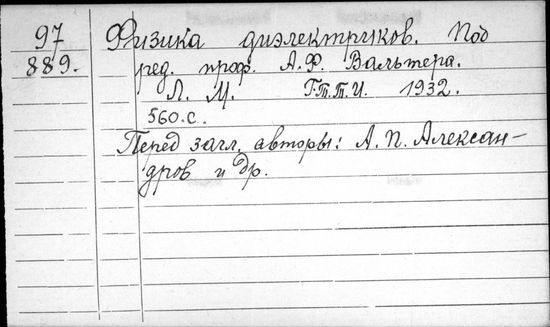 97 Физика диэлектриков. Под
889. ред. проф. А.Ф. Вальтера.
Л. М. Г.Т.Т.И. 1932.
560.с.
Перед загл. авторы: А.П. Алексан-
дров и др.